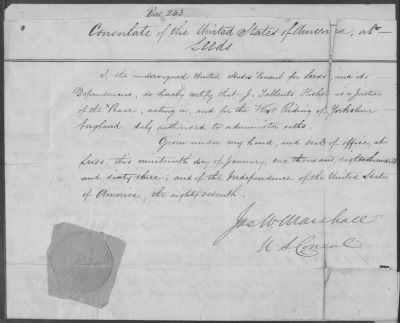 Doc 243
Consulate of the United States of America, at
Leeds
I, the undersigned United States Consul for Leeds and its
Dependencies, do hereby certify that J. Tallents Fisher is a Justice
of the Peace, acting in, and for the West Riding of Yorkshire
England duly authorised to administer oaths.
Given under my hand, and seal of office, at
Leeds, this nineteenth day of January, one thousand eight hundred
and sixty three; and of the Independence of the United States
of America, the eighty seventh.
Jas W Marshall
U S Consul